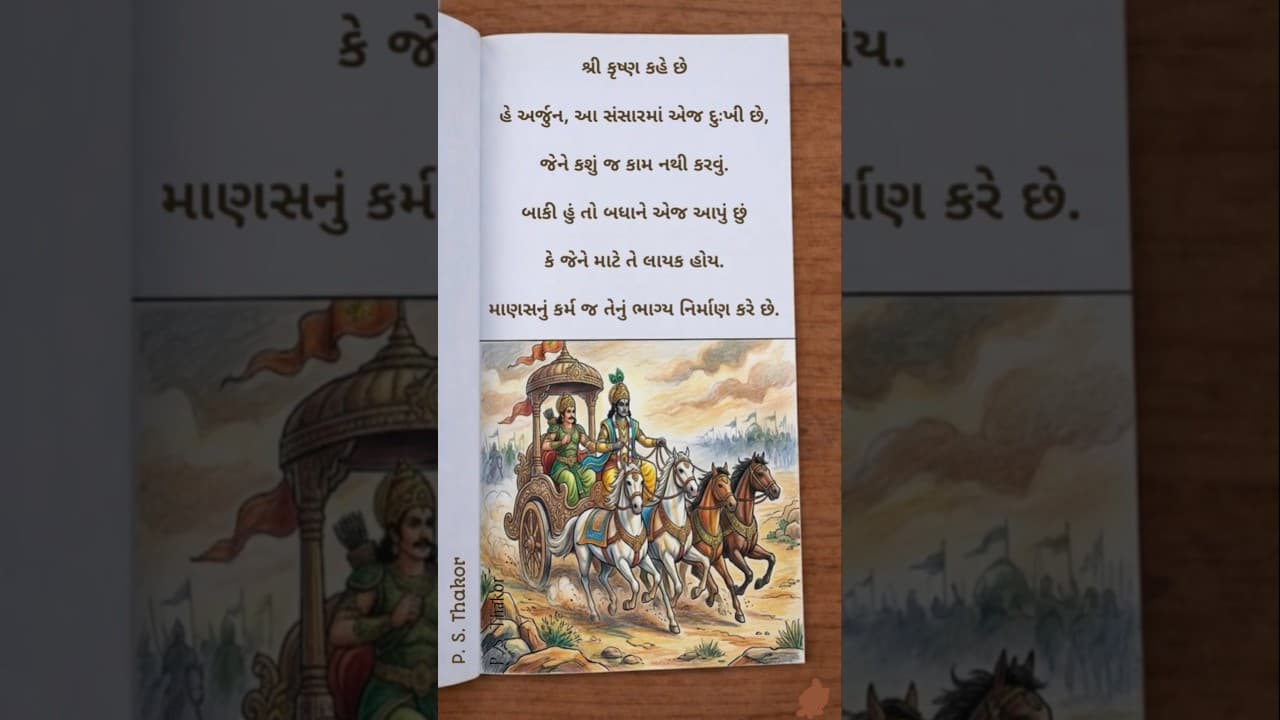 શ્રી કૃષ્ણ કહે છે
હે અર્જુન, આ સંસારમાં એજ દુઃખી છે,
જેને કશું જ કામ નથી કરવું.
બાકી હું તો બધાને એજ આપું છું
કે જેને માટે તે લાયક હોય.
માણસનું કર્મ જ તેનું ભાગ્ય નિર્માણ કરે છે.
P. S. Thakor
P. S. Thakor
કે જે
ોય.
માણસનું કર્મ
ર્માણ કરે છે.